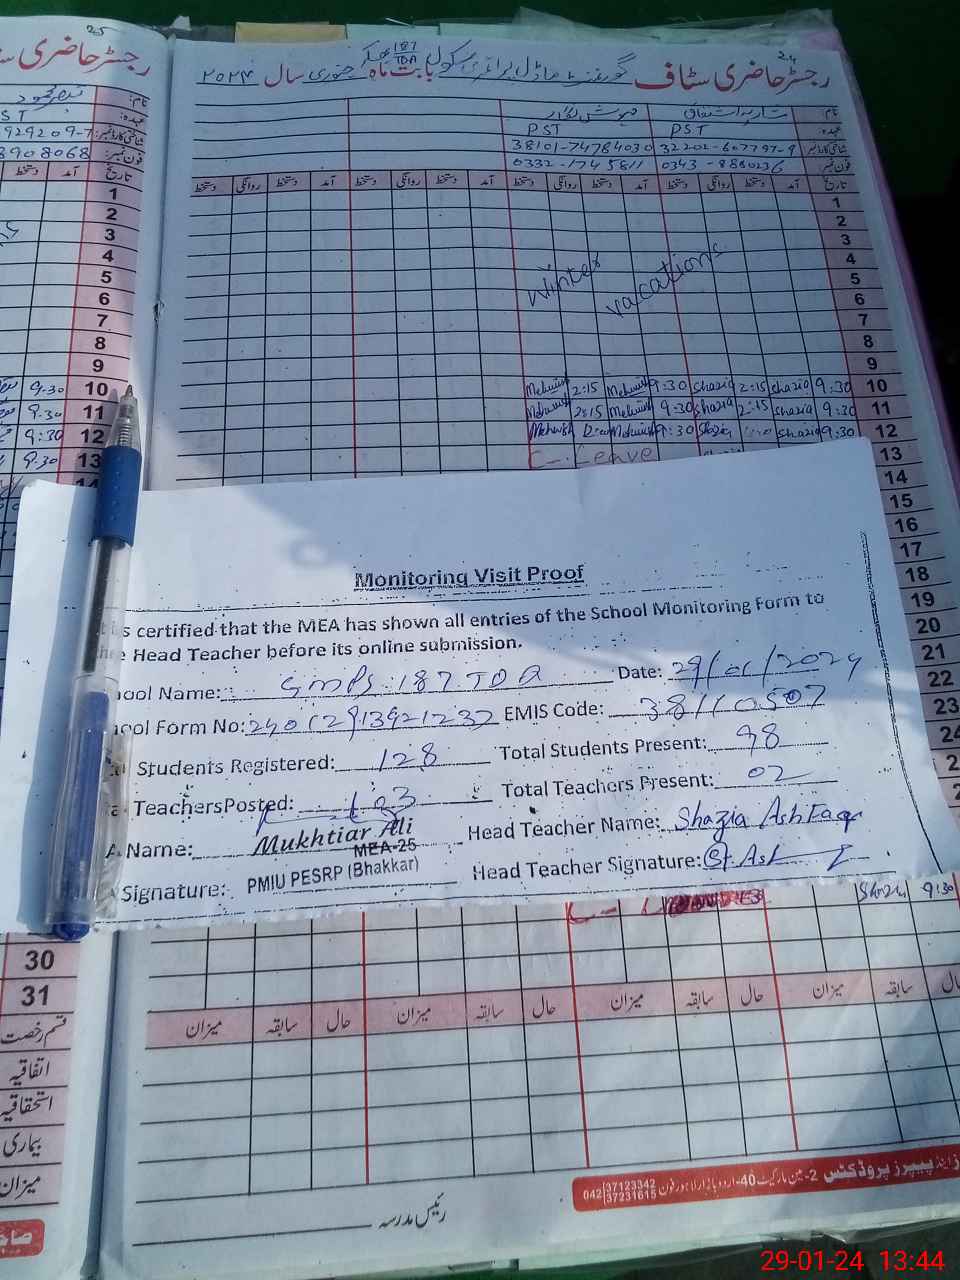 25
رجسٹر حاضری
نام:
عہدہ:
PST
شناختی کارڈ نمبر:
فون نمبر:
8908068
تاریخ
آمد
1
2
3
4
5
6
7
8
9
9:30 10
9:30 11
9:30 12
9:30 13
14
24
رجسٹر حاضری سٹاف گورنمنٹ ماڈل پرائمری سکول 187 TDA بھکر بابت ماہ جنوری سال ۲۰۲۴
نام:
عہدہ PST PST
شناختی کارڈ نمبر 32202-607797-9 38101-74784030
فون نمبر 0343-8880236 0332-1745811
تاریخ آمد دستخط روانگی دستخط آمد دستخط روانگی دستخط آمد دستخط روانگی دستخط آمد دستخط روانگی دستخط
1
2
3
4
5
6
7
8
9
winter vacations
Mehwish 2:15 Mehwish 9:30 shazia 2:15 shazia 9:30 10
Mehwish 2:15 Mehwish 9:30 shazia 2:15 shazia 9:30 11
Mehwish Mehwish 9:30 Shazia shazia 9:30 12
C-Leave 13
14
15
16
17
18
19
20
21
22
23
24
Monitoring Visit Proof
is certified that the MEA has shown all entries of the School Monitoring Form to
Head Teacher before its online submission.
School Name: GMPS 187 TDA Date: 29/01/2024
School Form No: EMIS Code: 38110507
Students Registered: 128 Total Students Present: 98
TeachersPosted: 03 Total Teachers Present: 02
Name: Mukhtiar Ali Head Teacher Name: Shazia Ashfaq
MEA-25
Signature: PMIU PESRP (Bhakkar) Head Teacher Signature:
9:30
30
31
قسم رخصت
اتفاقیہ
استحقاقیہ
بیماری
میزان
حال سابقہ میزان حال سابقہ میزان حال سابقہ میزان حال سابقہ میزان
رئیس مدرسہ
پیپرز پروڈکٹس 2-مین مارکیٹ 40-اردو بازار لاہور فون 042 37123342
37231615
29-01-24 13:44